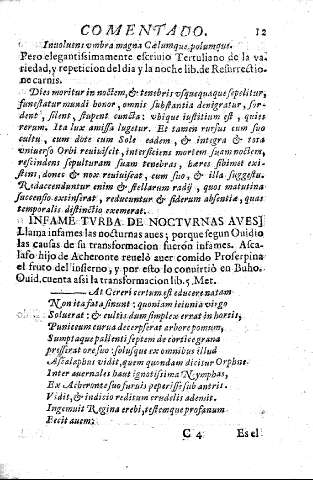 COMENTADO. 12
Inuoluens vmbra magna Cælumque, polumque.
Pero elegantissimamente escriuio Tertuliano de la va-
riedad, y repeticion del dia y la noche lib. de Resurrectio-
ne carnis.
Dies moritur in noctem, & tenebris vsquequaque sepelitur,
funestatur mundi honor, omnis substantia denigratur, sor-
dent, silent, stupent cuncta: vbique iustitium est, quies
rerum. Ita lux amissa lugetur. Et tamen rursus cum suo
cultu, cum dote cum Sole eadem, & integra & tota
vniuerso Orbi reuiuiscit, interficiens mortem suam noctem,
rescindens sepulturam suam tenebras, hæres sibimet exi-
stens, donec & nox reuiuiscat, cum suo, & illa suggestu.
Redaccenduntur enim & stellarum radij, quos matutina
succensio extinserat, reducuntur & siderum absentiæ, quas
temporalis distinctio exemerat.
INFAME TVRBA DE NOCTVRNAS AVES]
Llama infames las nocturnas aues; porque segun Ouidio
las causas de su transformacion fueron infames. Asca-
lafo hijo de Acheronte reuelò auer comido Proserpina
el fruto del infierno, y por esto lo conuirtiò en Buho.
Ouid. cuenta assi la transformacion lib. 5. Met.
At Cereri certum est educere natam
Non ita fata sinunt: quoniam ieiunia virgo
Soluerat: & cultis dum simplex errat in hortis,
Puniceum curua decerpserat arbore pomum,
Sumptaque pallenti septem de cortice grana
presserat ore suo: solusque ex omnibus illud
Ascalaphus vidit, quem quondam dicitur Orphne
Inter auernales haut ignotissima Nymphas,
Ex Acheronte suo furuis peperisse sub antris.
Vidit, & indicio reditum crudelis ademit.
Ingemuit Regina erebi, testemque profanum
Fecit auem:
C 4 Es el